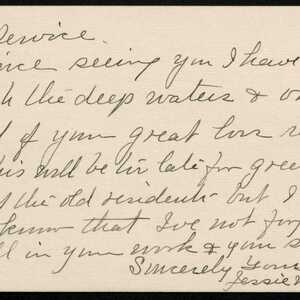 Service.
since seeing you I have
the deep waters &
of your great loss
this will be too late for
of the old residents but I
know that I've not
in your work & your
Sincerely Your
Jessie